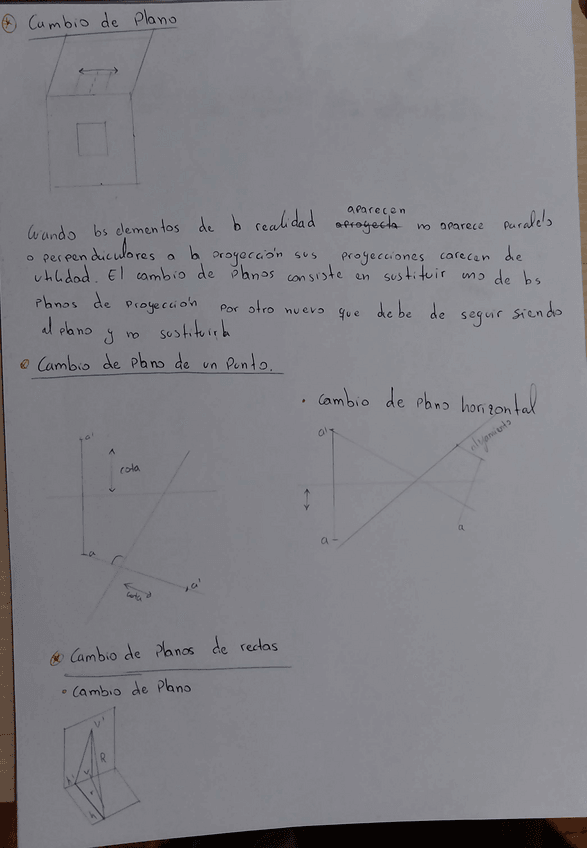 Cambio de Plano
aparecen
Cuando los elementos de la realidad aproyecta no aparece paralelo
o perpendiculares a la proyección sus proyecciones carecen de
utilidad. El cambio de planos consiste en sustituir uno de los
Planos de Proyección por otro nuevo que debe de seguir siendo
al plano y no sustituirla
Cambio de Plano de un Punto.
• Cambio de Plano horizontal
a'
cota
a
cota
a'
a'
alejamiento
a
a
Cambio de Planos de rectas
• Cambio de Plano
V'
R
h'
v
r
h